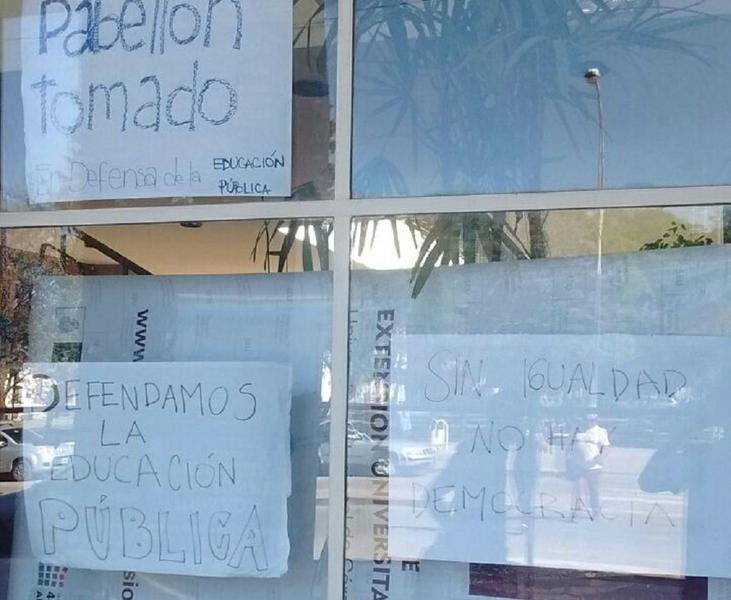 Pabellón
tomado
En Defensa de la EDUCACIÓN
PÚBLICA
www
DEFENDAMOS
LA
EDUCACIÓN
PÚBLICA
EXTENSION UNIVERSITA
SIN IGUALDAD
NO HAY
DEMOCRACIA